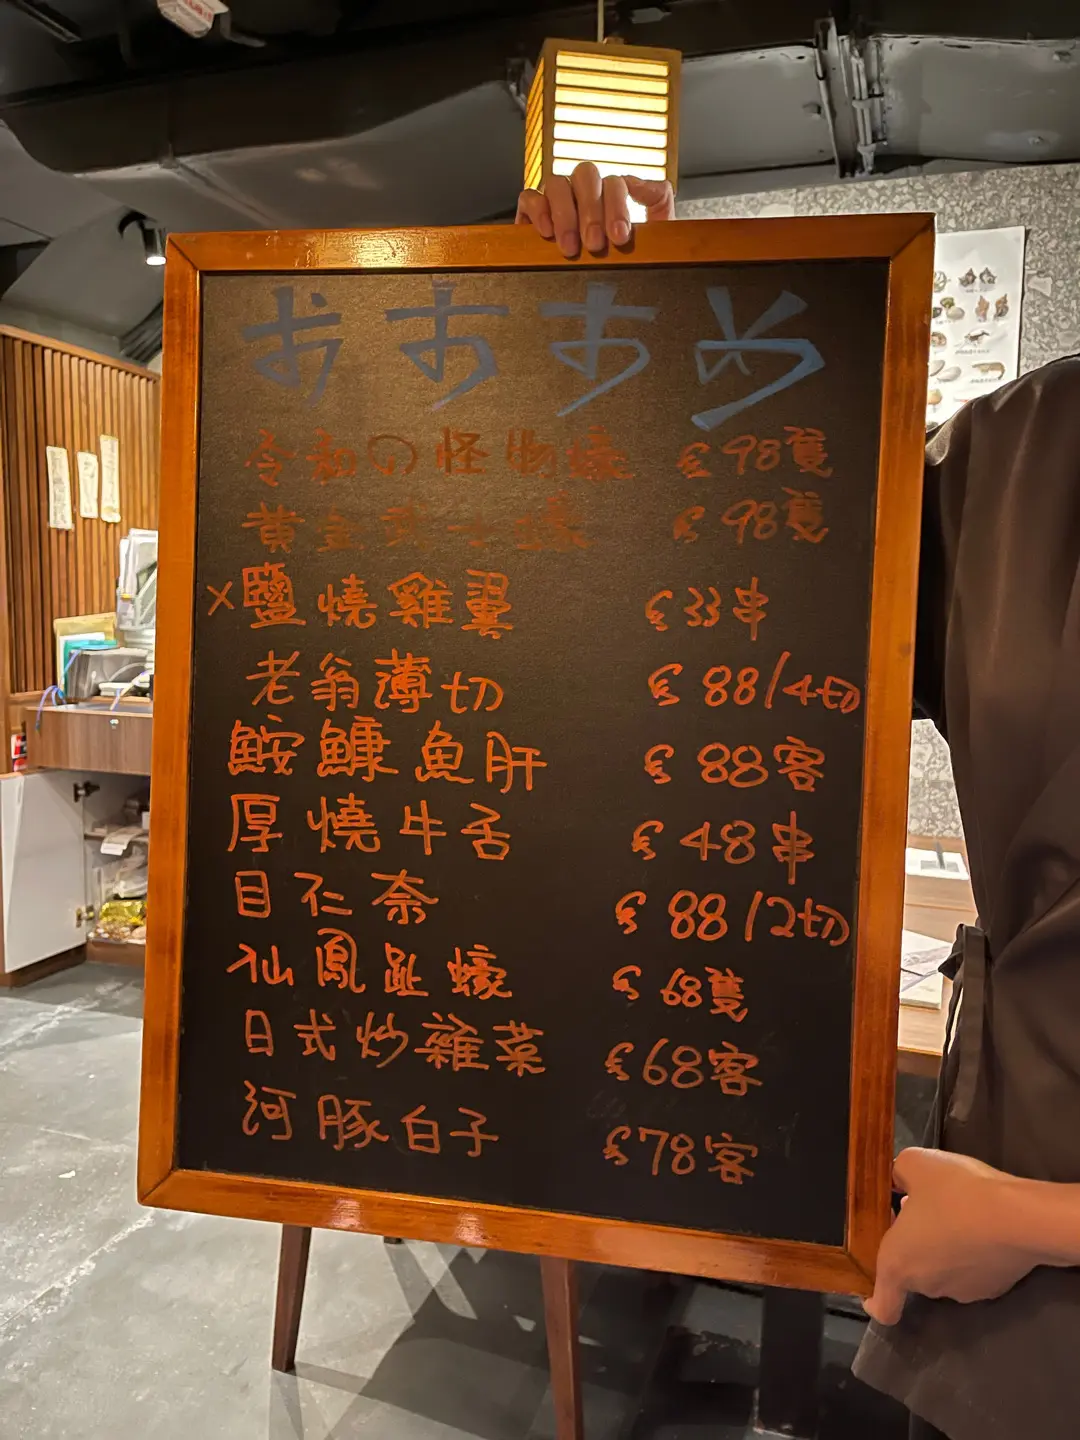 おすすめ
令和の怪物蠔 $98隻
黃金武士蠔 $98隻
x鹽燒雞翼 $33串
老翁薄切 $88/4切
鮟鱇魚肝 $88客
厚燒牛舌 $48串
目仁奈 $88/2切
仙鳳趾蠔 $68隻
日式炒雜菜 $68客
河豚白子 $78客